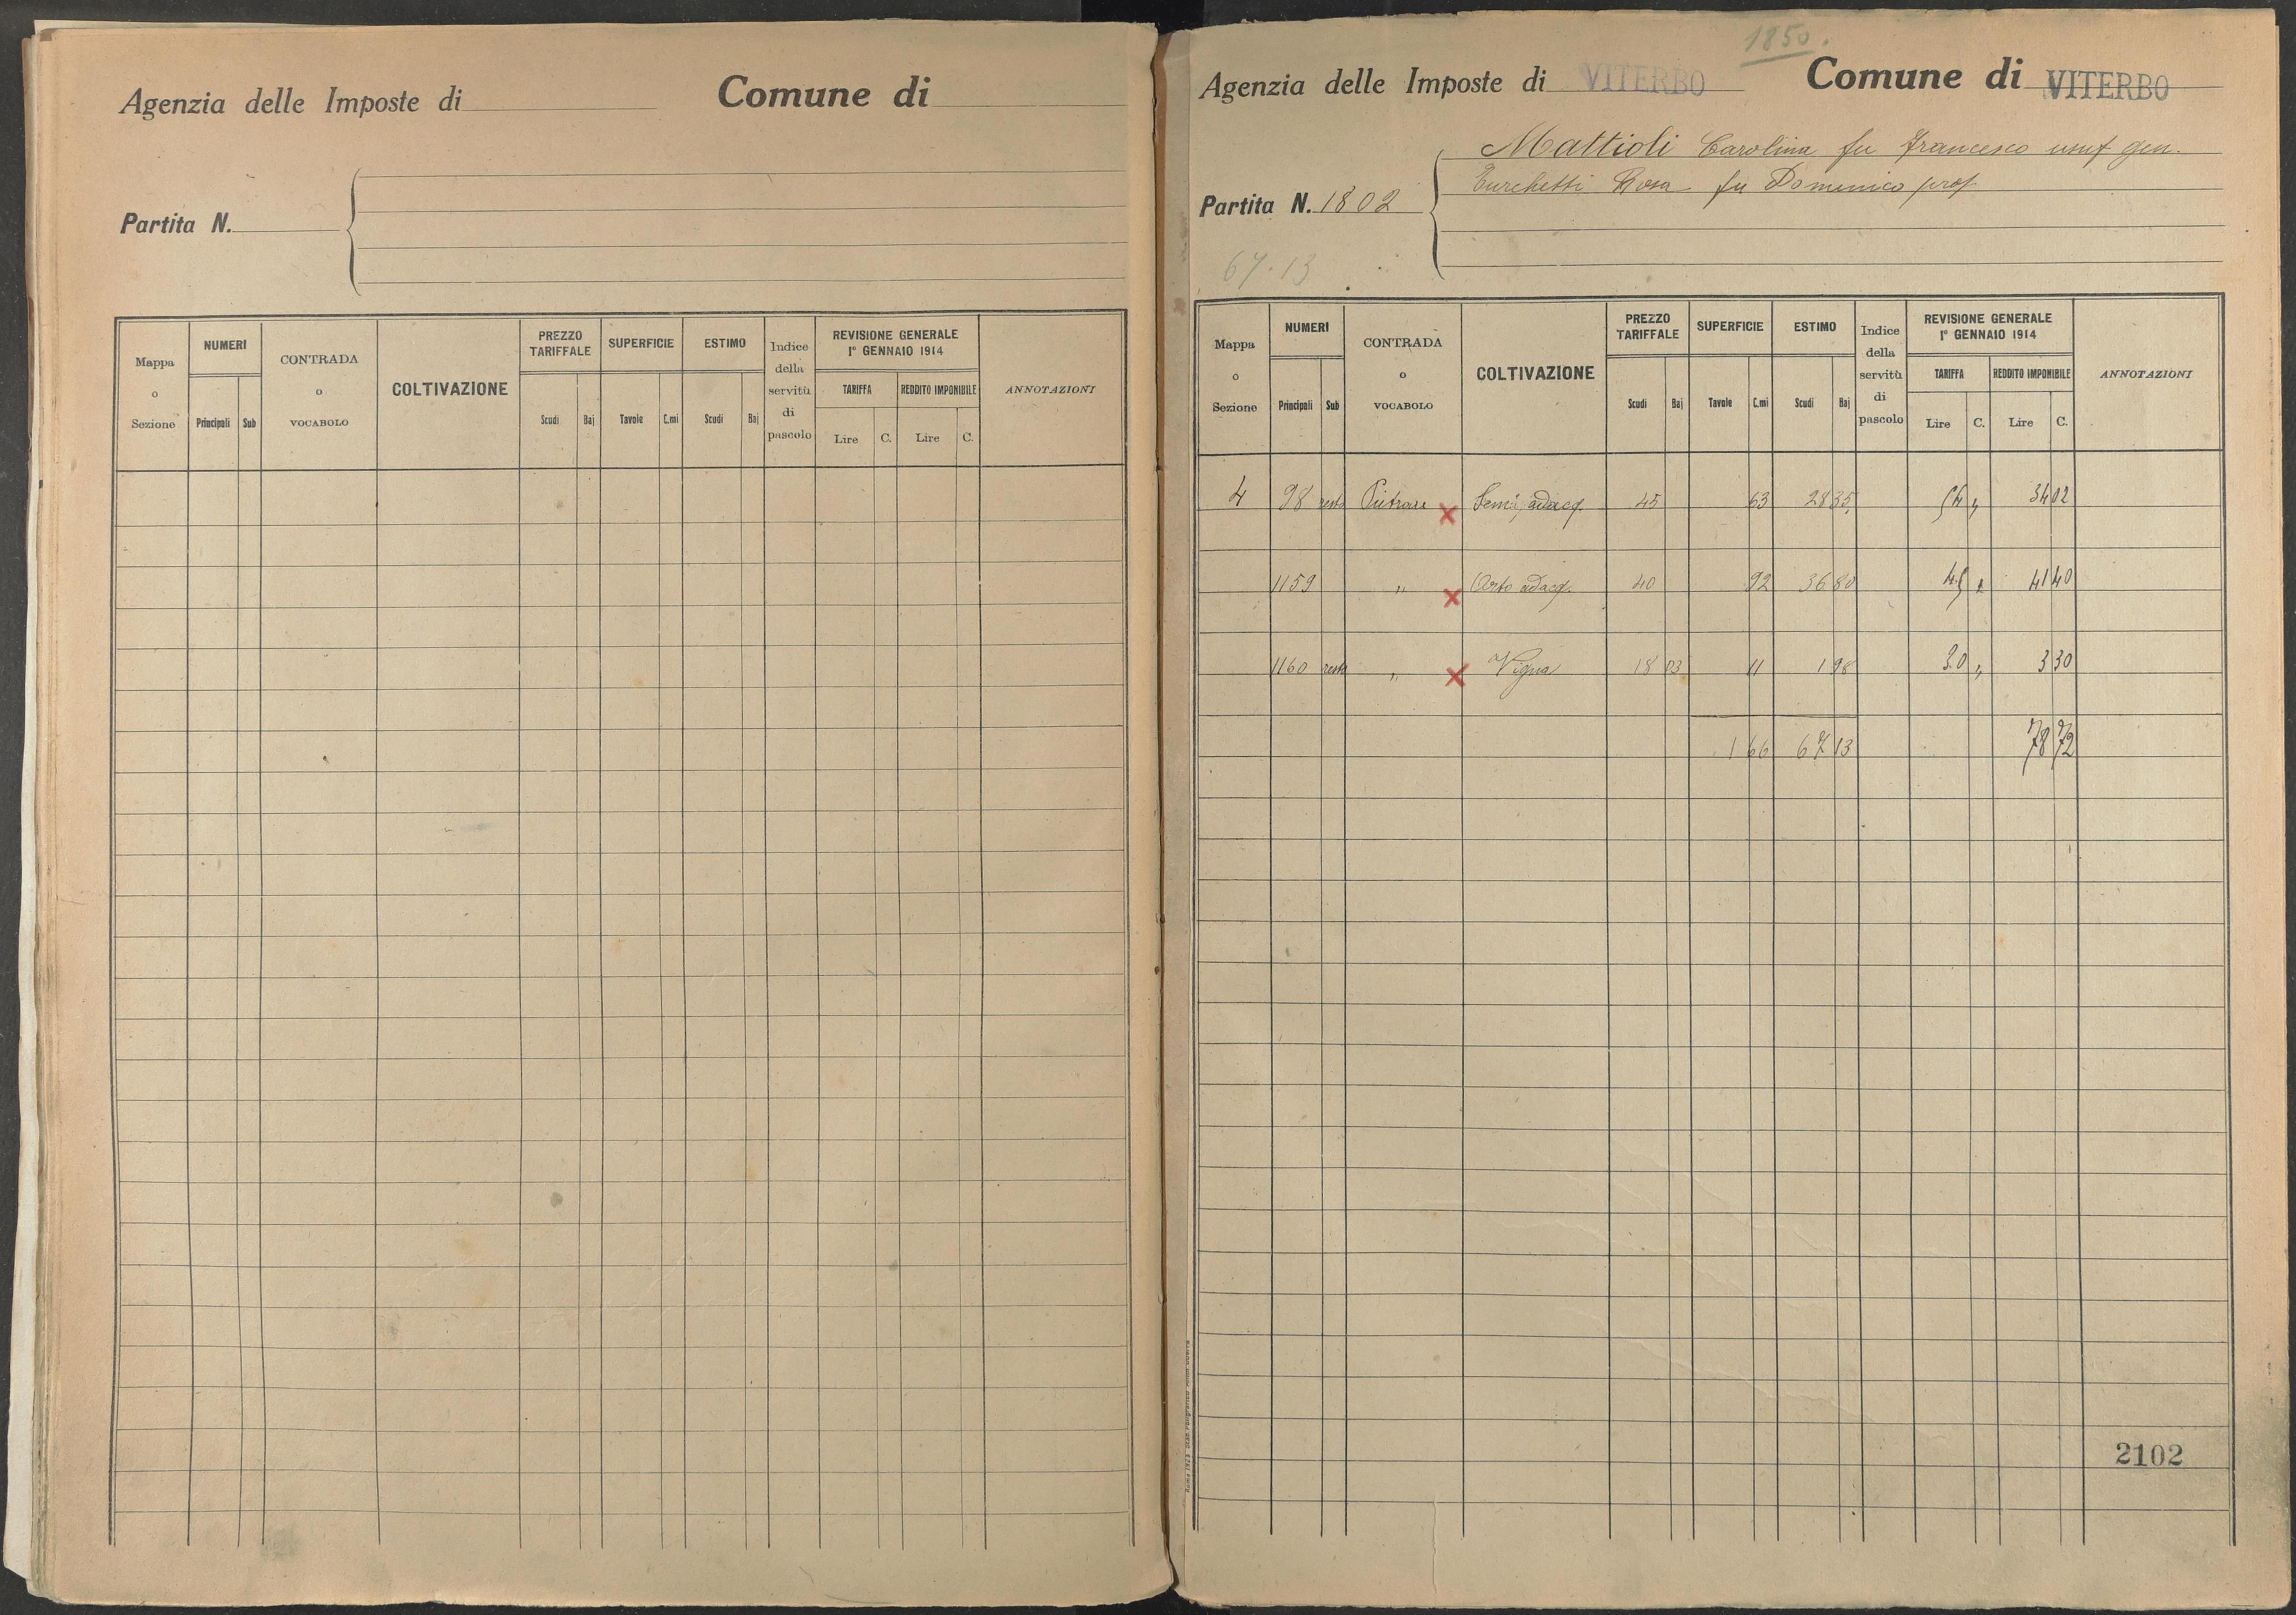 Agenzia delle Imposte di Comune di
Partita N.
Mappa o Sezione NUMERI Principali Sub CONTRADA o VOCABOLO COLTIVAZIONE PREZZO TARIFFALE Scudi Baj SUPERFICIE Tavole C.mi ESTIMO Scudi Baj Indice della servitù di pascolo REVISIONE GENERALE 1° GENNAIO 1914 TARIFFA Lire C. REDDITO IMPONIBILE Lire C. ANNOTAZIONI
1850.
Agenzia delle Imposte di VITERBO Comune di VITERBO
Mattioli Carolina fu Francesco usuf gen.
Turchetti Rosa fu Domenico prop
Partita N. 1802
67.13
Mappa o Sezione NUMERI Principali Sub CONTRADA o VOCABOLO COLTIVAZIONE PREZZO TARIFFALE Scudi Baj SUPERFICIE Tavole C.mi ESTIMO Scudi Baj Indice della servitù di pascolo REVISIONE GENERALE 1° GENNAIO 1914 TARIFFA Lire C. REDDITO IMPONIBILE Lire C. ANNOTAZIONI
4 98 resto Pietrare Semi adacq. 45 63 28 35 54 " 34 02
1159 " Orto adacq. 40 92 36 80 45 " 41 40
1160 resto " Vigna 18 03 11 1 98 30 " 3 30
1 66 67 13 78 72
2102